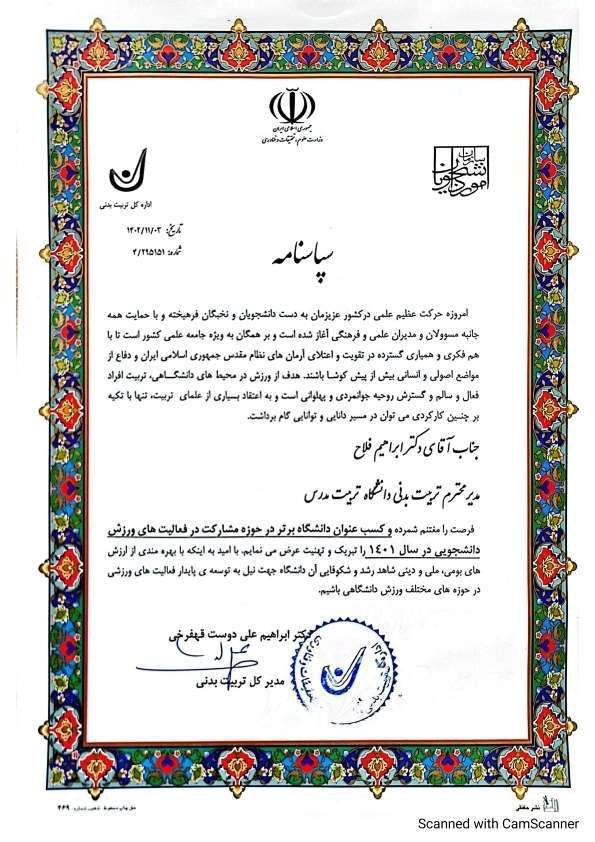 جمهوری اسلامی ایران
وزارت علوم، تحقیقات و فناوری
سازمان امور دانشجویان
اداره کل تربیت بدنی
تاریخ: ۱۴۰۲/۱۱/۰۳
شماره: ۴/۲۹۵۱۵۱
سپاسنامه
امروزه حرکت عظیم علمی درکشور عزیزمان به دست دانشجویان و نخبگان فرهیخته و با حمایت همه
جانبه مسوولان و مدیران علمی و فرهنگی آغاز شده است و بر همگان به ویژه جامعه علمی کشور است تا با
هم فکری و همیاری گسترده در تقویت و اعتلای آرمان های نظام مقدس جمهوری اسلامی ایران و دفاع از
مواضع اصولی و انسانی بیش از پیش کوشا باشند. هدف از ورزش در محیط های دانشگاهی، تربیت افراد
فعال و سالم و گسترش روحیه جوانمردی و پهلوانی است و به اعتقاد بسیاری از علمای تربیت، تنها با تکیه
بر چنین کارکردی می توان در مسیر دانایی و توانایی گام برداشت.
جناب آقای دکتر ابراهیم فلاح
مدیر محترم تربیت بدنی دانشگاه تربیت مدرس
فرصت را مغتنم شمرده و کسب عنوان دانشگاه برتر در حوزه مشارکت در فعالیت های ورزش
دانشجویی در سال ۱۴۰۱ را تبریک و تهنیت عرض می نمایم. با امید به اینکه با بهره مندی از ارزش
های بومی، ملی و دینی شاهد رشد و شکوفایی آن دانشگاه جهت نیل به توسعه ی پایدار فعالیت های ورزشی
در حوزه های مختلف ورزش دانشگاهی باشیم.
دکتر ابراهیم علی دوست قهفرخی
مدیر کل تربیت بدنی
نشر حافظی
حق چاپ محفوظ
۴۶۹
Scanned with CamScanner